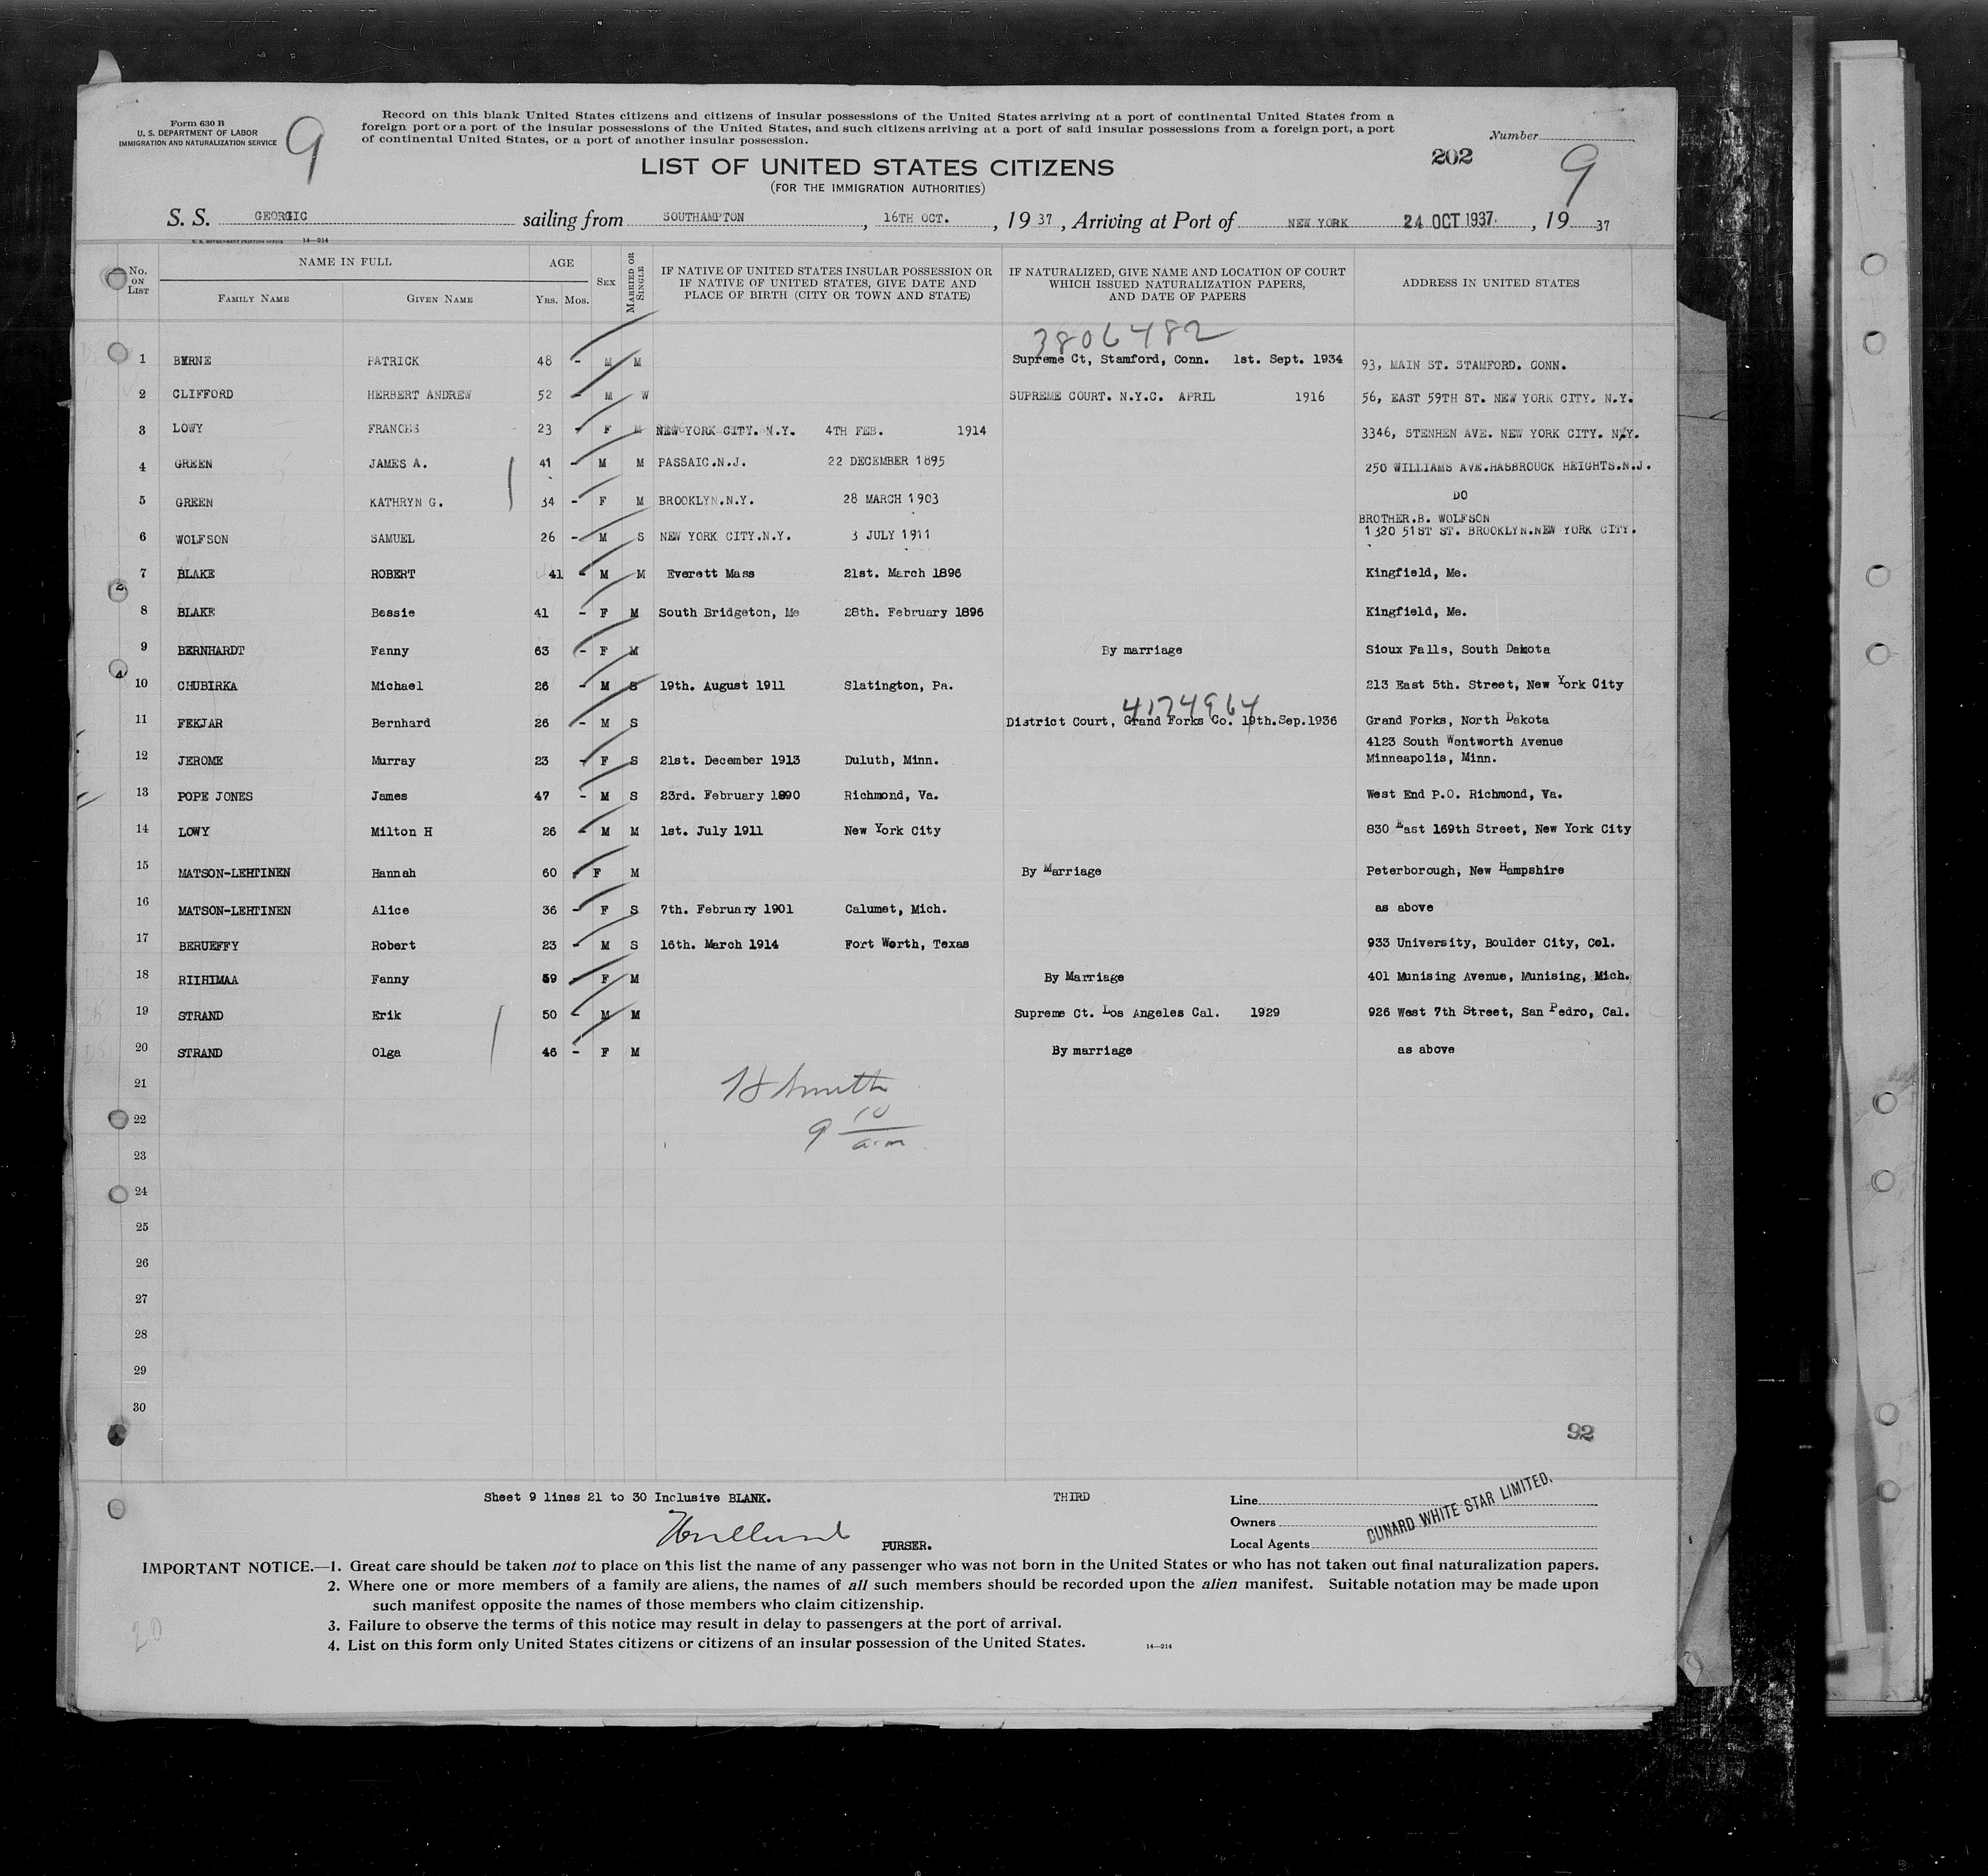 Form 630 B
U. S. DEPARTMENT OF LABOR
IMMIGRATION AND NATURALIZATION SERVICE
9
Record on this blank United States citizens and citizens of insular possessions of the United States arriving at a port of continental United States from a
foreign port or a port of the insular possessions of the United States, and such citizens arriving at a port of said insular possessions from a foreign port, a port
of continental United States, or a port of another insular possession.
Number
202
9
LIST OF UNITED STATES CITIZENS
(FOR THE IMMIGRATION AUTHORITIES)
S. S. GEORGIC sailing from SOUTHAMPTON, 16TH OCT., 1937, Arriving at Port of NEW YORK 24 OCT 1937, 1937
U. S. GOVERNMENT PRINTING OFFICE 14—214
No. ON LIST
NAME IN FULL
FAMILY NAME GIVEN NAME
AGE
YRS. MOS.
SEX
MARRIED OR SINGLE
IF NATIVE OF UNITED STATES INSULAR POSSESSION OR
IF NATIVE OF UNITED STATES, GIVE DATE AND
PLACE OF BIRTH (CITY OR TOWN AND STATE)
IF NATURALIZED, GIVE NAME AND LOCATION OF COURT
WHICH ISSUED NATURALIZATION PAPERS,
AND DATE OF PAPERS
ADDRESS IN UNITED STATES
3806482
1 BYRNE PATRICK 48 - M M Supreme Ct, Stamford, Conn. 1st. Sept. 1934 93, MAIN ST. STAMFORD. CONN.
2 CLIFFORD HERBERT ANDREW 52 - M W SUPREME COURT. N.Y.C. APRIL 1916 56, EAST 59TH ST. NEW YORK CITY. N.Y.
3 LOWY FRANCES 23 - F M NEW YORK CITY. N.Y. 4TH FEB. 1914 3346, STENHEN AVE. NEW YORK CITY. N.Y.
4 GREEN JAMES A. 41 - M M PASSAIC.N.J. 22 DECEMBER 1895 250 WILLIAMS AVE.HASBROUCK HEIGHTS.N.J.
5 GREEN KATHRYN G. 34 - F M BROOKLYN.N.Y. 28 MARCH 1903 DO
BROTHER.B. WOLFSON
6 WOLFSON SAMUEL 26 - M S NEW YORK CITY.N.Y. 3 JULY 1911 1320 51ST ST. BROOKLYN.NEW YORK CITY.
7 BLAKE ROBERT 41 - M M Everett Mass 21st. March 1896 Kingfield, Me.
8 BLAKE Bessie 41 - F M South Bridgeton, Me 28th. February 1896 Kingfield, Me.
9 BERNHARDT Fanny 63 - F M By marriage Sioux Falls, South Dakota
10 CHUBIRKA Michael 26 - M S 19th. August 1911 Slatington, Pa. 213 East 5th. Street, New York City
4174964
11 FEKJAR Bernhard 26 - M S District Court, Grand Forks Co. 19th.Sep.1936 Grand Forks, North Dakota
4123 South Wentworth Avenue
12 JEROME Murray 23 - F S 21st. December 1913 Duluth, Minn. Minneapolis, Minn.
13 POPE JONES James 47 - M S 23rd. February 1890 Richmond, Va. West End P.O. Richmond, Va.
14 LOWY Milton H 26 - M M 1st. July 1911 New York City 830 East 169th Street, New York City
15 MATSON-LEHTINEN Hannah 60 - F M By Marriage Peterborough, New Hampshire
16 MATSON-LEHTINEN Alice 36 - F S 7th. February 1901 Calumet, Mich. as above
17 BERUEFFY Robert 23 - M S 16th. March 1914 Fort Worth, Texas 933 University, Boulder City, Col.
18 RIIHIMAA Fanny 59 - F M By Marriage 401 Munising Avenue, Munising, Mich.
19 STRAND Erik 50 - M M Supreme Ct. Los Angeles Cal. 1929 926 West 7th Street, San Pedro, Cal.
20 STRAND Olga 46 - F M By marriage as above
21
H Smith
22
9 10 a.m
23
24
25
26
27
28
29
30
92
Sheet 9 lines 21 to 30 Inclusive BLANK. THIRD
PURSER.
Line
Owners
Local Agents
CUNARD WHITE STAR LIMITED.
IMPORTANT NOTICE.—1. Great care should be taken not to place on this list the name of any passenger who was not born in the United States or who has not taken out final naturalization papers.
2. Where one or more members of a family are aliens, the names of all such members should be recorded upon the alien manifest. Suitable notation may be made upon
such manifest opposite the names of those members who claim citizenship.
3. Failure to observe the terms of this notice may result in delay to passengers at the port of arrival.
4. List on this form only United States citizens or citizens of an insular possession of the United States. 14—214
20